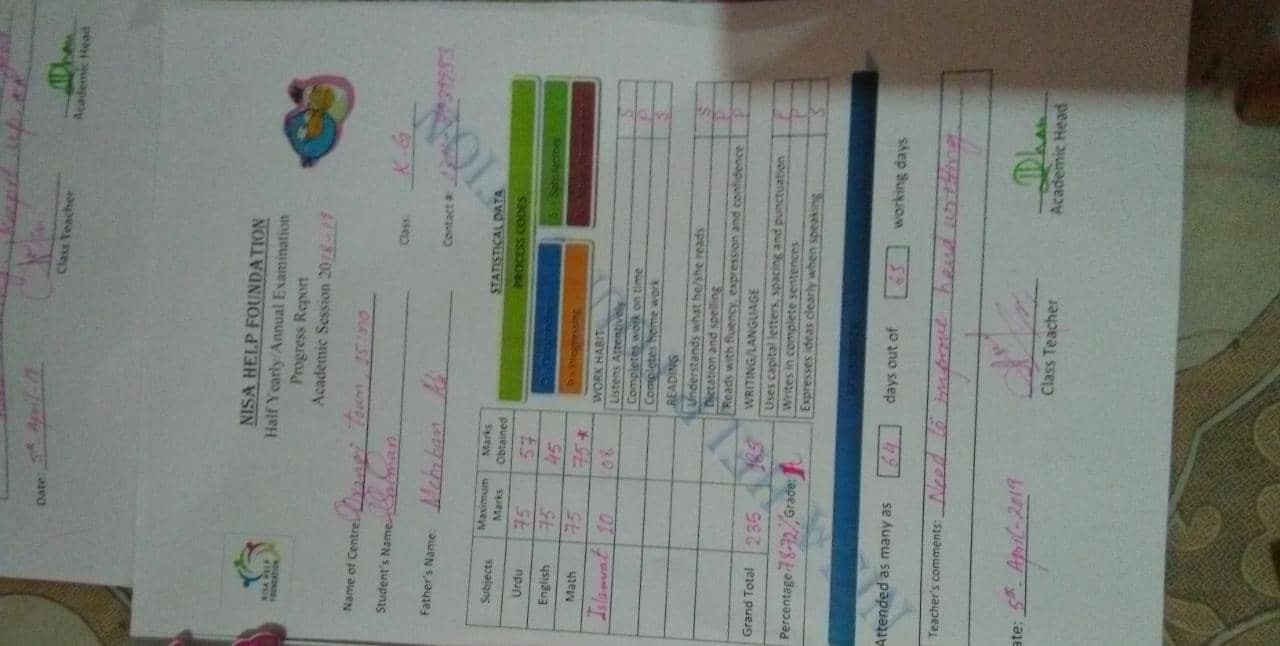 Keep it up
Class Teacher
Academic Head
Date: 5th April-19
NISA HELP FOUNDATION
NISA HELP FOUNDATION
Half Yearly/Annual Examination
Progress Report
Academic Session 2018-19
Name of Centre: Town
Student's Name:
Class: K.G
Father's Name:
Contact #:
STATISTICAL DATA
Subjects Maximum Marks Marks Obtained
Urdu 75 57
English 75 45
Math 75 75*
Islamyat 10 08
Grand Total 235 185
Percentage: 78.72% Grade:
PROCESS CODES
P = Progressing
WORK HABIT
Listens Attentively S
Completes work on time P
Completes home work S
READING
Understands what he/she reads S
Dictation and spelling P
Reads with fluency, expression and confidence P
WRITING/LANGUAGE
Uses capital letters, spacing and punctuation P
Writes in complete sentences P
Expresses ideas clearly when speaking S
Attended as many as 64 days out of 65 working days
Teacher's comments: Need to improve hand writting
ate: 5th - April - 2019
Class Teacher
Academic Head